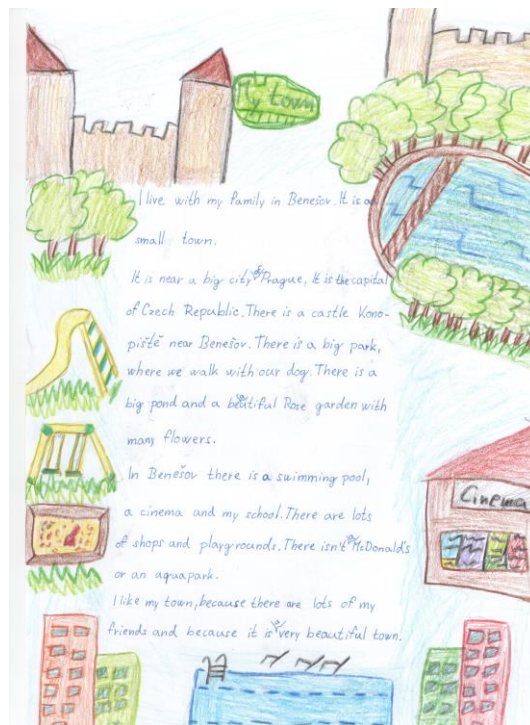 My town
I live with my family in Benešov. It is a
small town.
It is near a big city of Prague, It is the capital
of Czech Republic. There is a castle Kono-
piště near Benešov. There is a big park,
where we walk with our dog. There is a
big pond and a beautiful Rose garden with
many flowers.
In Benešov there is a swimming pool,
a cinema and my school. There are lots
of shops and playgrounds. There isn't a McDonald's
or an aquapark.
I like my town, because there are lots of my
friends and because it is a very beautiful town.
Cinema